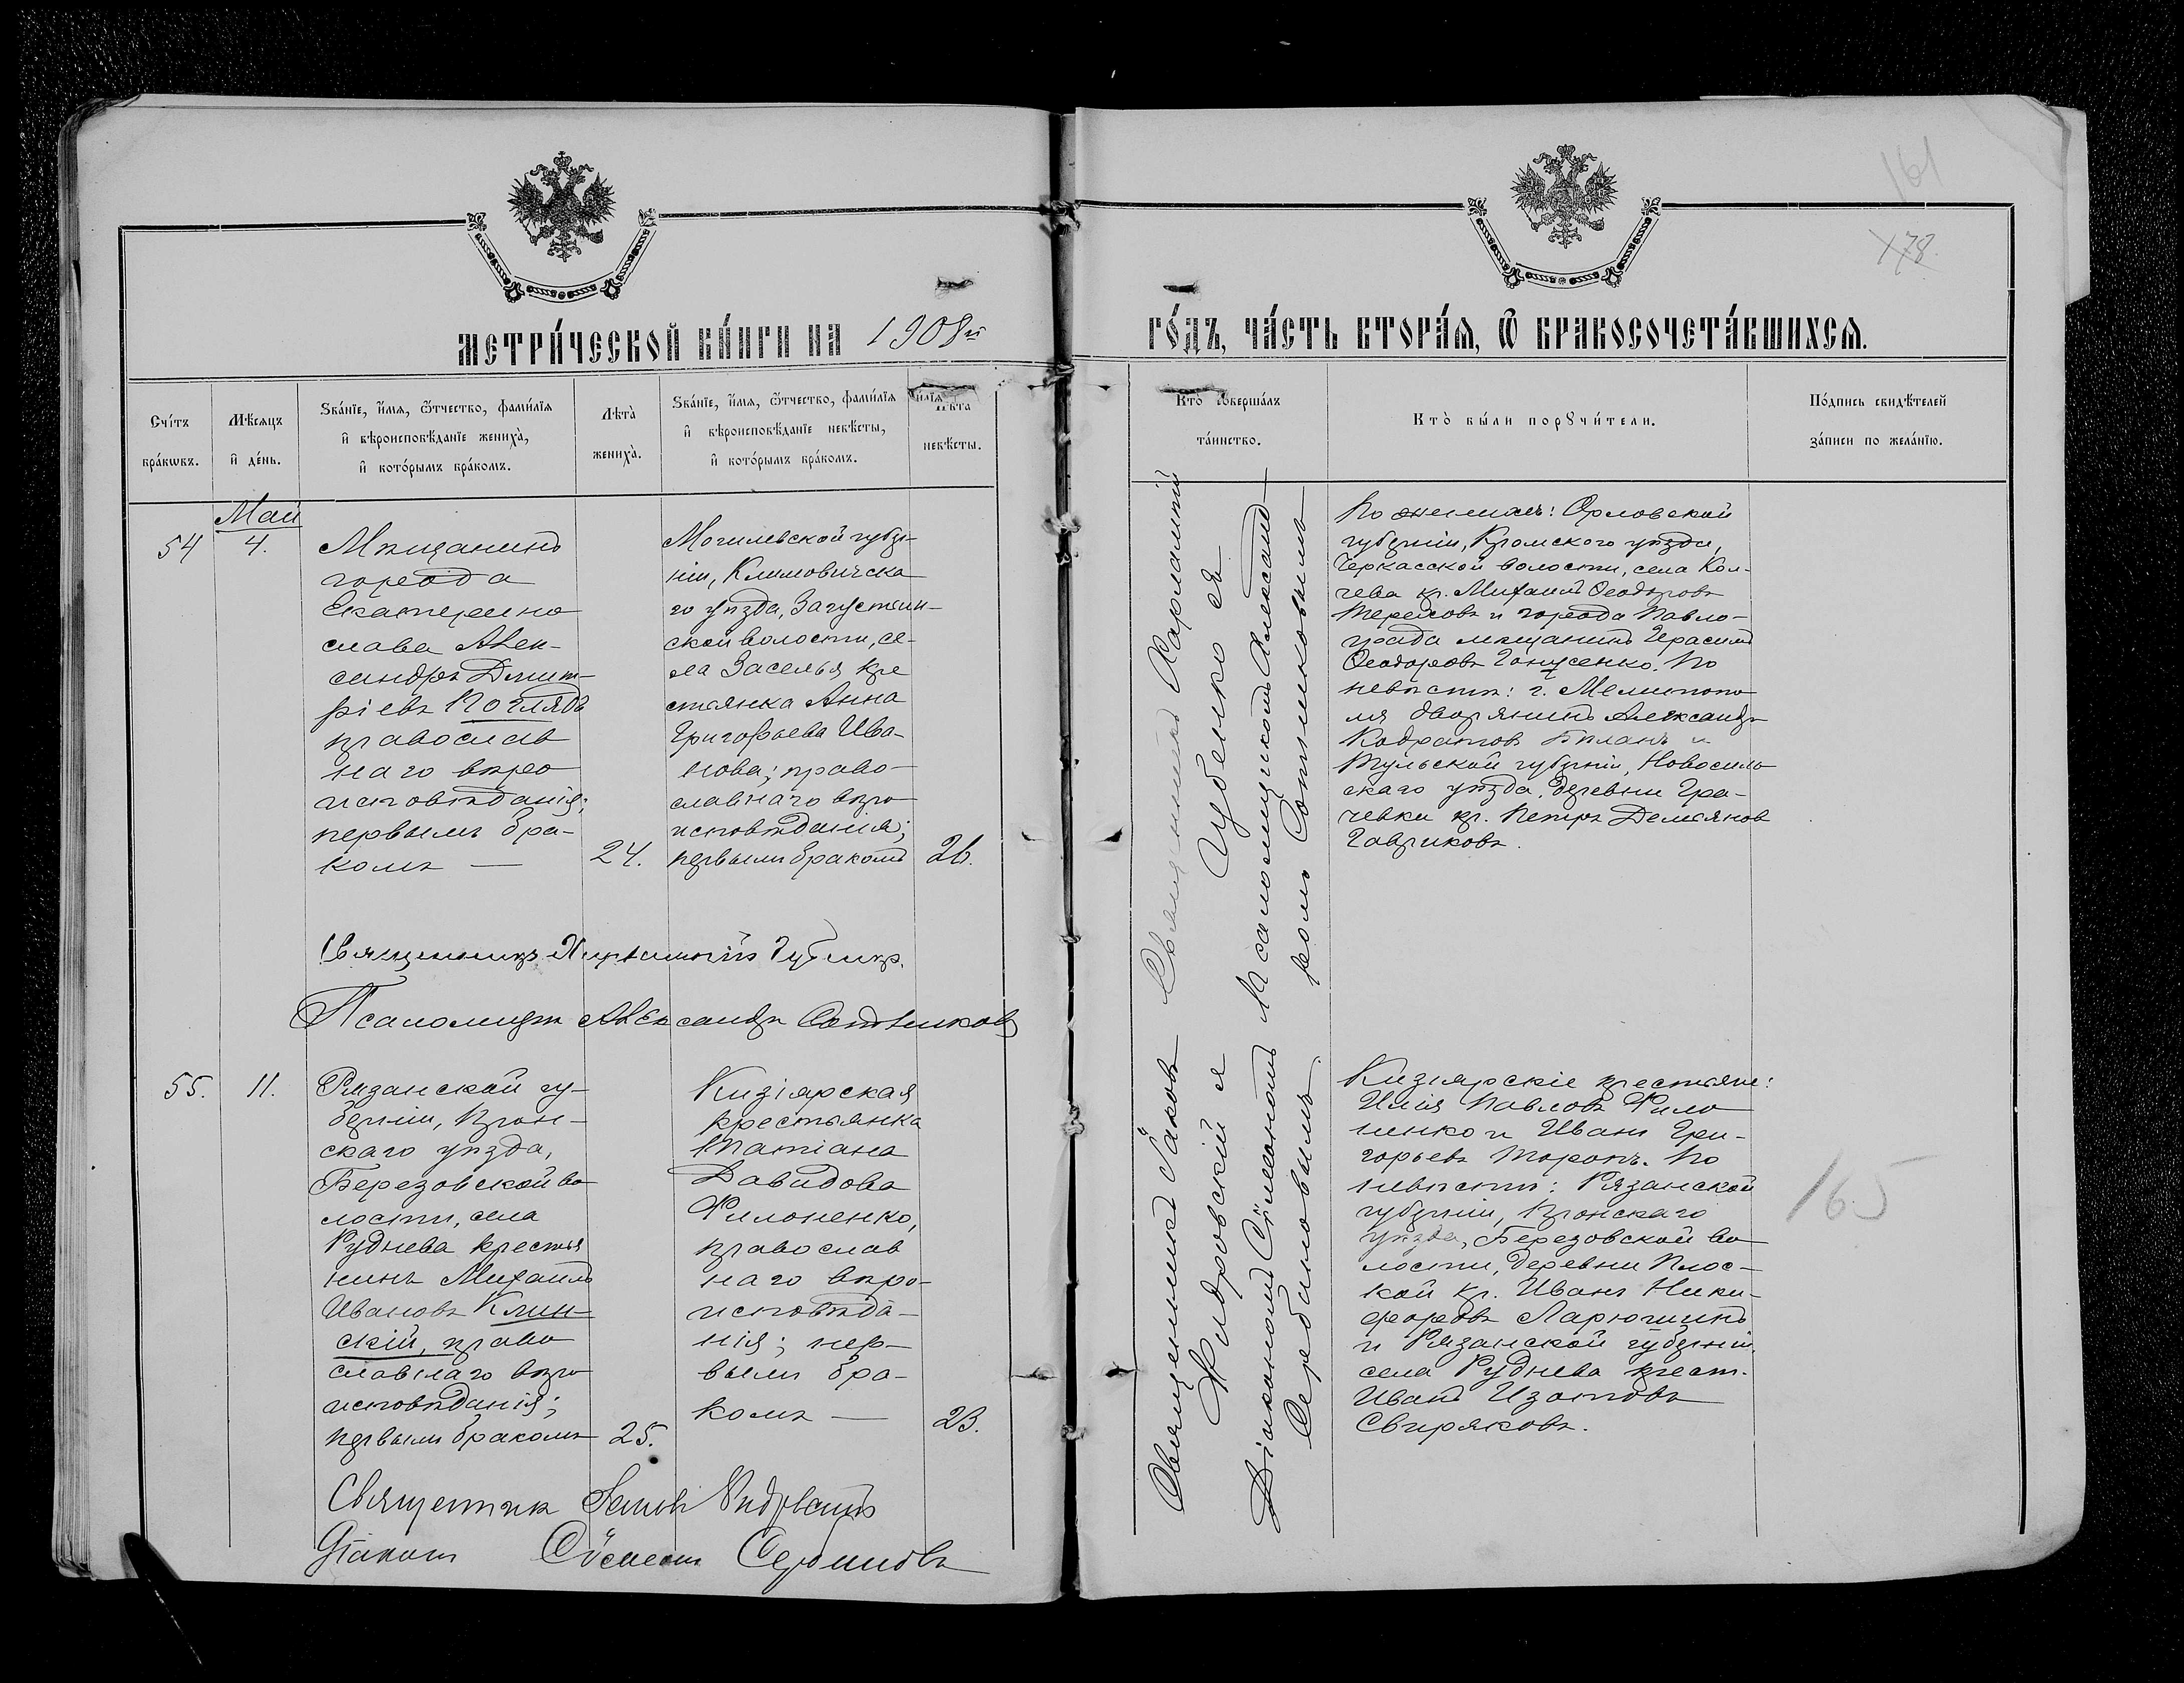 161
178.
МЕТРИ́ЧЕСКОЙ КНИ́ГИ НА 1908й
ГО́ДЪ, ЧА́СТЬ ВТОРА́Я, Ѽ БРАКОСОЧЕТА́ВШИХСЯ.
Сче́тъ бра́кѡвъ.
Мѣ́сяцъ и҆ де́нь.
Зва́нїе, и҆́мя, ѻ҆́тчество, фами́лїя
и҆ вѣроисповѣ́данїе жениха̀,
и҆ кото́рымъ бра́комъ.
Лѣта̀
жениха̀.
Зва́нїе, и҆́мя, ѻ҆́тчество, фами́лїя
и҆ вѣроисповѣ́данїе невѣ́сты,
и҆ кото́рымъ бра́комъ.
Лѣта
невѣ́сты.
Кто̀ соверша́лъ
та́инство.
Кто̀ бы́ли порꙋчи́тели.
По́дпись свидѣ́телей
за́писи по жела́нїю.
Май
54
4.
Мѣщанинъ
города
Екатерино
слава Алек-
сандръ Димит-
ріевъ Поглядъ
православ
наго вѣро
исповѣданія;
первымъ бра-
комъ —
24.
Могилевской губер-
ніи, Климовичска
го уѣзда, Загустин-
ской волости, се-
ла Заселья кре
стьянка Анна
Григорьева Ива-
нова; право-
славнаго вѣро
исповѣданія;
первымъ бракомъ
26.
Священникъ Харлампій Губенко
Псаломщикомъ Александ-
ромъ Сотниковымъ
По женихѣ: Орловской
губерніи, Кромского уѣзда,
Черкасской волости, села Кол-
чева кр. Михаилъ Ѳеодоровъ
Тереховъ и города Павло-
града мѣщанинъ Герасимъ
Ѳеодоровъ Ганусенко. По
невѣстѣ: г. Мелитопо
ля дворянинъ Александръ
Кодратовъ Бѣланъ и
Тульской губерніи, Новосиль
скаго уѣзда, деревни Гра-
чевки кр. Петръ Демьяновъ
Гавриковъ.
Священникъ Харлампій Губенко.
Псаломщикъ Александръ Сотниковъ
55.
11.
Рязанской гу-
берніи, Прон-
скаго уѣзда,
Березовской во
лости, села
Руднева крестья
нинъ Михаилъ
Ивановъ Клин-
скій, право
славнаго вѣро
исповѣданія;
первымъ бракомъ
25.
Кизіярская
крестьянка
Татіана
Давидова
Филоненко,
православ
наго вѣро-
исповѣда-
нія; пер-
вымъ бра-
комъ —
23.
Священникъ Іаковъ
Діакономъ Сѵмеономъ
Сербиновымъ.
Кизіярскіе крестьяне:
Илія Павловъ Фило
ненко и Иванъ Гри-
горьевъ Торопъ. По
невѣстѣ: Рязанской
губерніи, Пронскаго
уѣзда, Березовской во
лости, деревни Плос-
кой кр. Иванъ Ники-
форовъ Ларюшинъ
и Рязанской губерніи,
села Руднева крест.
Иванъ Изотовъ
Свиряковъ.
165
Священникъ Іаковъ
Діаконъ Сѵмеонъ Сербиновъ